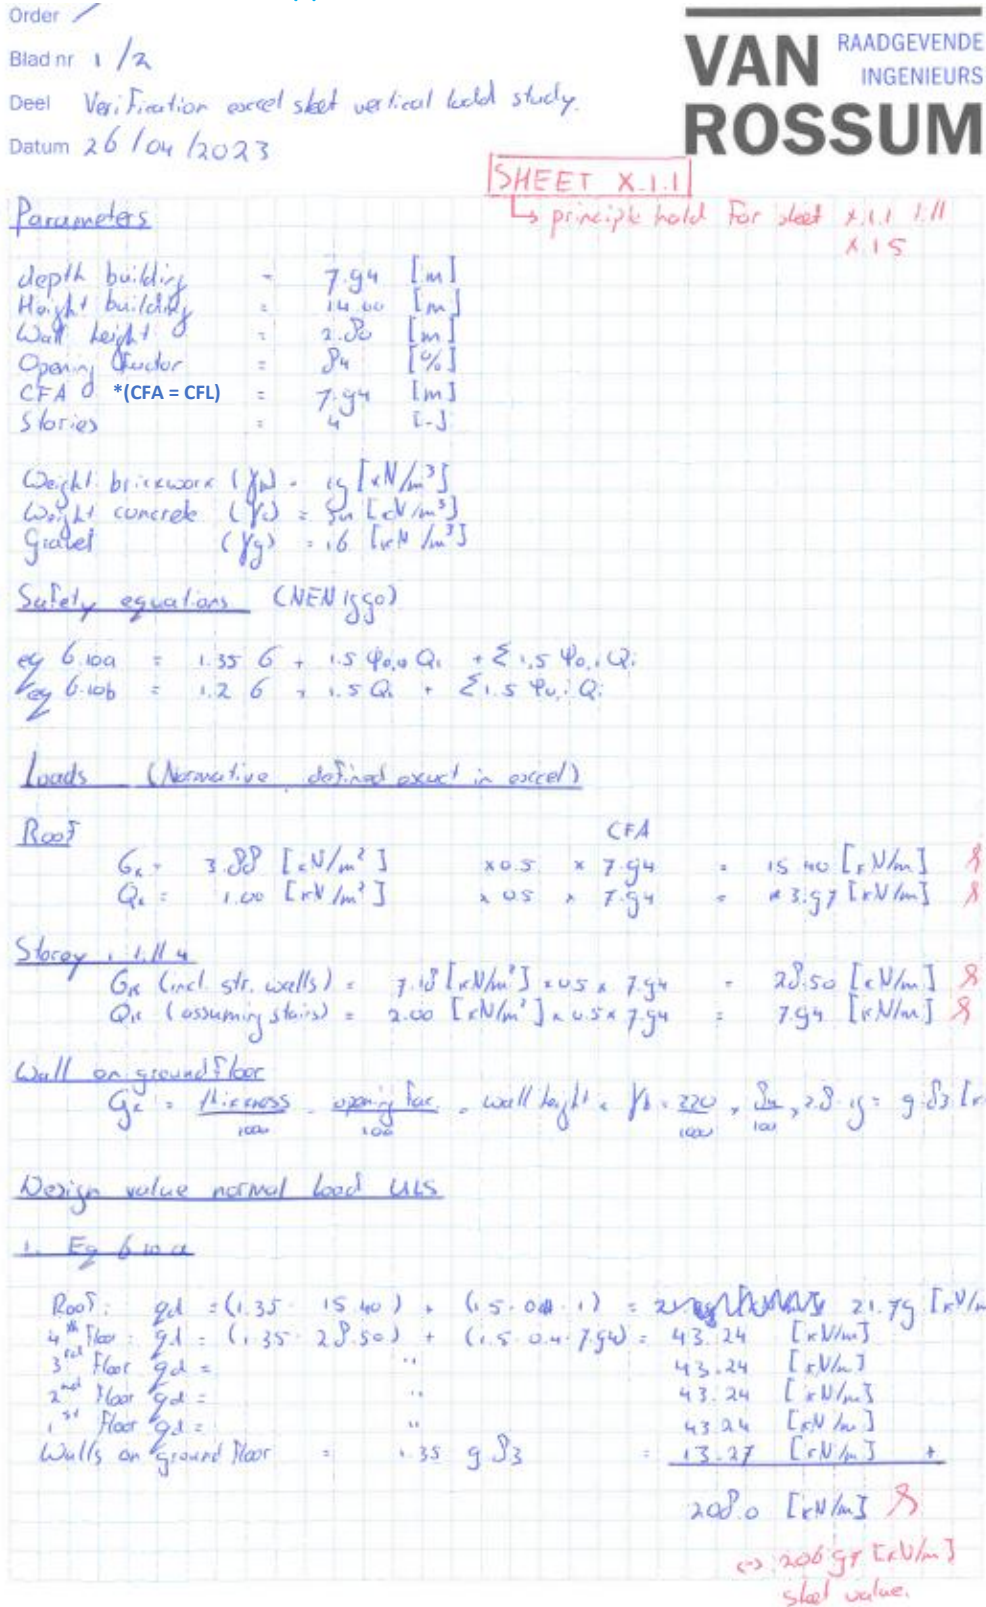 Order /
Blad nr 1/2
Deel Verification excel sheet vertical load study.
Datum 26/04/2023
VAN ROSSUM
RAADGEVENDE
INGENIEURS
SHEET X.1.1
↳ principle hold For sheet X.1.1 t.//
X.1 5
Parameters
depth building = 7.94 [m]
Height building = 14.00 [m]
Wall height = 2.80 [m]
Opening factor = 84 [%]
CFA *(CFA = CFL) = 7.94 [m]
Stories = 4 [-]
Weight brickwork (γb) = 19 [kN/m³]
Weight concrete (γc) = [kN/m³]
Gravel (γg) = 16 [kN/m³]
Safety equations (NEN 1990)
eq 6.10a = 1.35 G + 1.5 φ0,0 Qi + Σ 1,5 φ0,i Qi
eq 6.10b = 1.2 G + 1.5 Qi + Σ 1.5 φ0,i Qi
Loads (Normative defined exact in excel)
Roof CFA
Gk = 3.88 [kN/m²] x 0.5 x 7.94 = 15.40 [kN/m]
Qk = 1.00 [kN/m²] x 0.5 x 7.94 = 3.97 [kN/m]
Storey 1 t.// 4
Gk (incl. str. walls) = 7.18 [kN/m²] x 0.5 x 7.94 = 28.50 [kN/m]
Qk (assuming stairs) = 2.00 [kN/m²] x 0.5 x 7.94 = 7.94 [kN/m]
Wall on ground floor
Gk = thickness/1000 . opening fac./100 . wall height . γb = 220/1000 . 84/100 . 2.8 . 19 = 9.83 [k
Design value normal load ULS
1. Eq 6.10 a
Roof: qd = (1.35 · 15.40) + (1.5 · 0 · 1) = 21.79 [kN/m
4th Floor: qd = (1.35 · 28.50) + (1.5 · 0.4 · 7.94) = 43.24 [kN/m]
3rd Floor qd = " 43.24 [kN/m]
2nd Floor qd = " 43.24 [kN/m]
1st Floor qd = " 43.24 [kN/m]
Walls on ground floor = 1.35 9.83 = 13.27 [kN/m] +
208.0 [kN/m]
<-> 206.97 [kN/m]
sheet value.